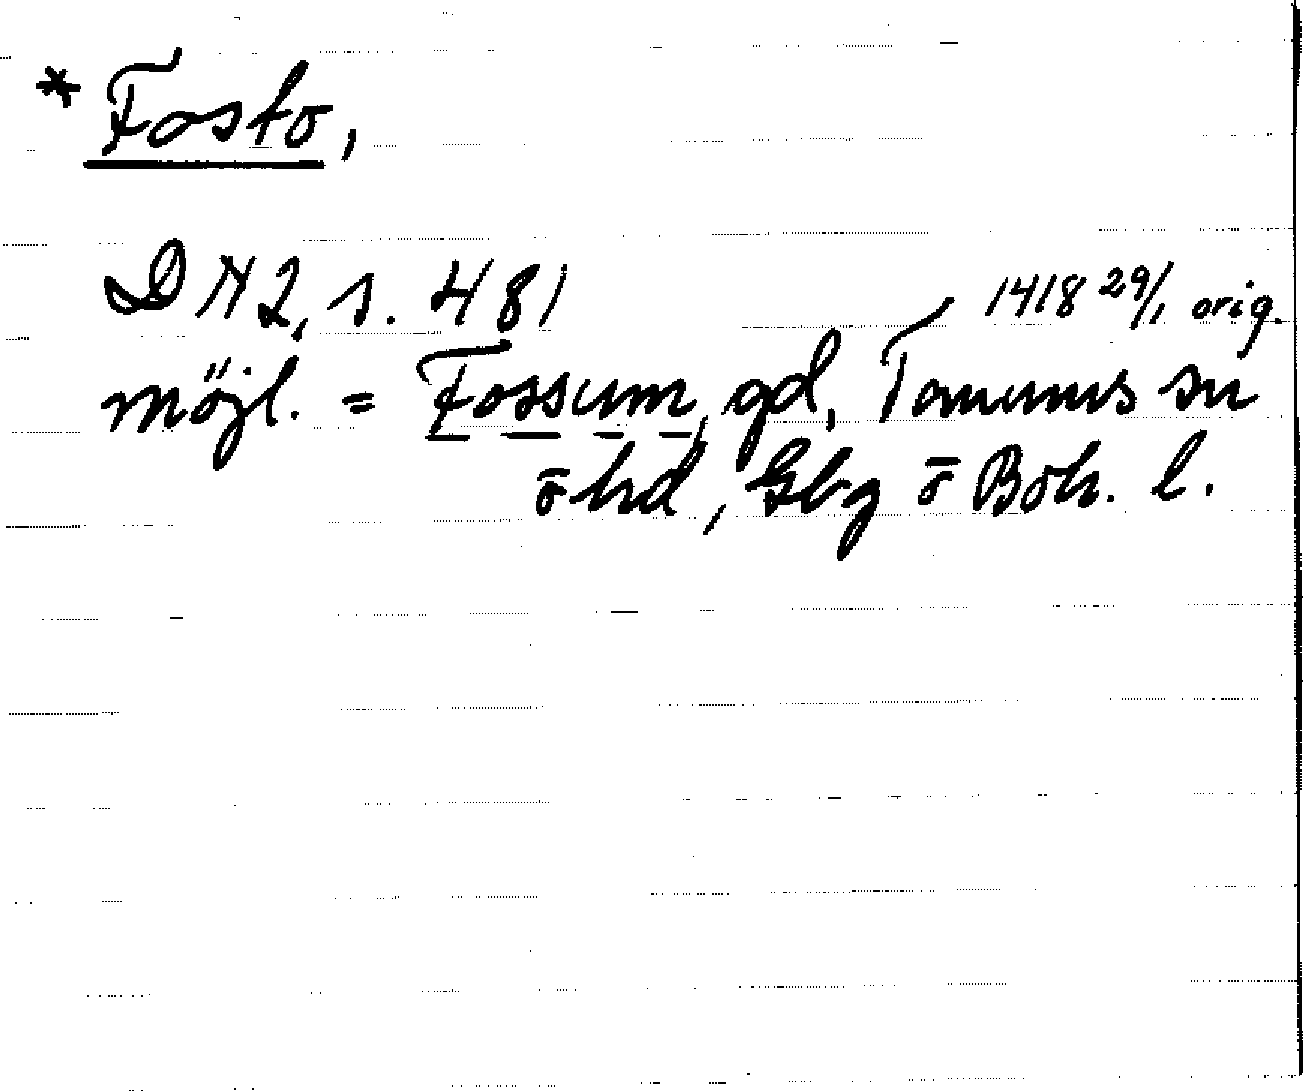 * Fosto,
DN 2, s. 481 1418 29/1 orig.
möjl. = Fossum, gd, Tanums sn
o hd, Gbg o Boh. l.